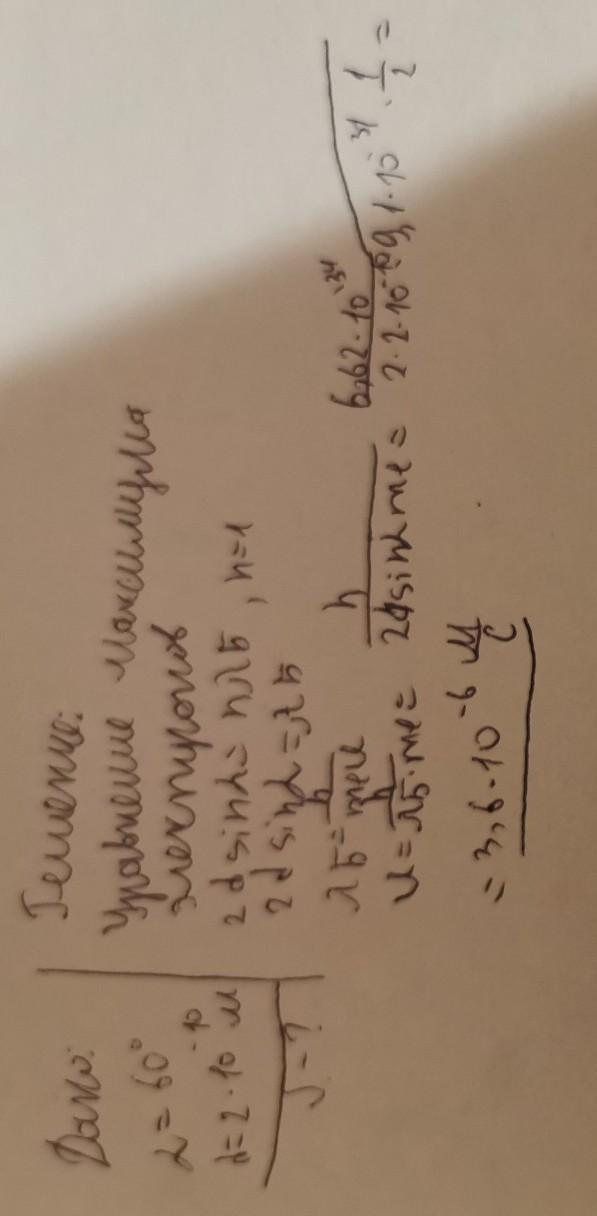 Дано:
α = 60°
d = 2 · 10⁻¹⁰ м
υ - ?
Решение:
Уравнение максимума
электронов
2 d sin α = n λБ , n=1
2 d sin α = λБ
λБ = h / me u
u = h / λБ · me = h / 2d sin α me = 6,62 · 10⁻³⁴ / 2 · 2 · 10⁻¹⁰ · 9,1 · 10⁻³¹ · 1/2 =
= 3,6 · 10⁻⁶ м/с